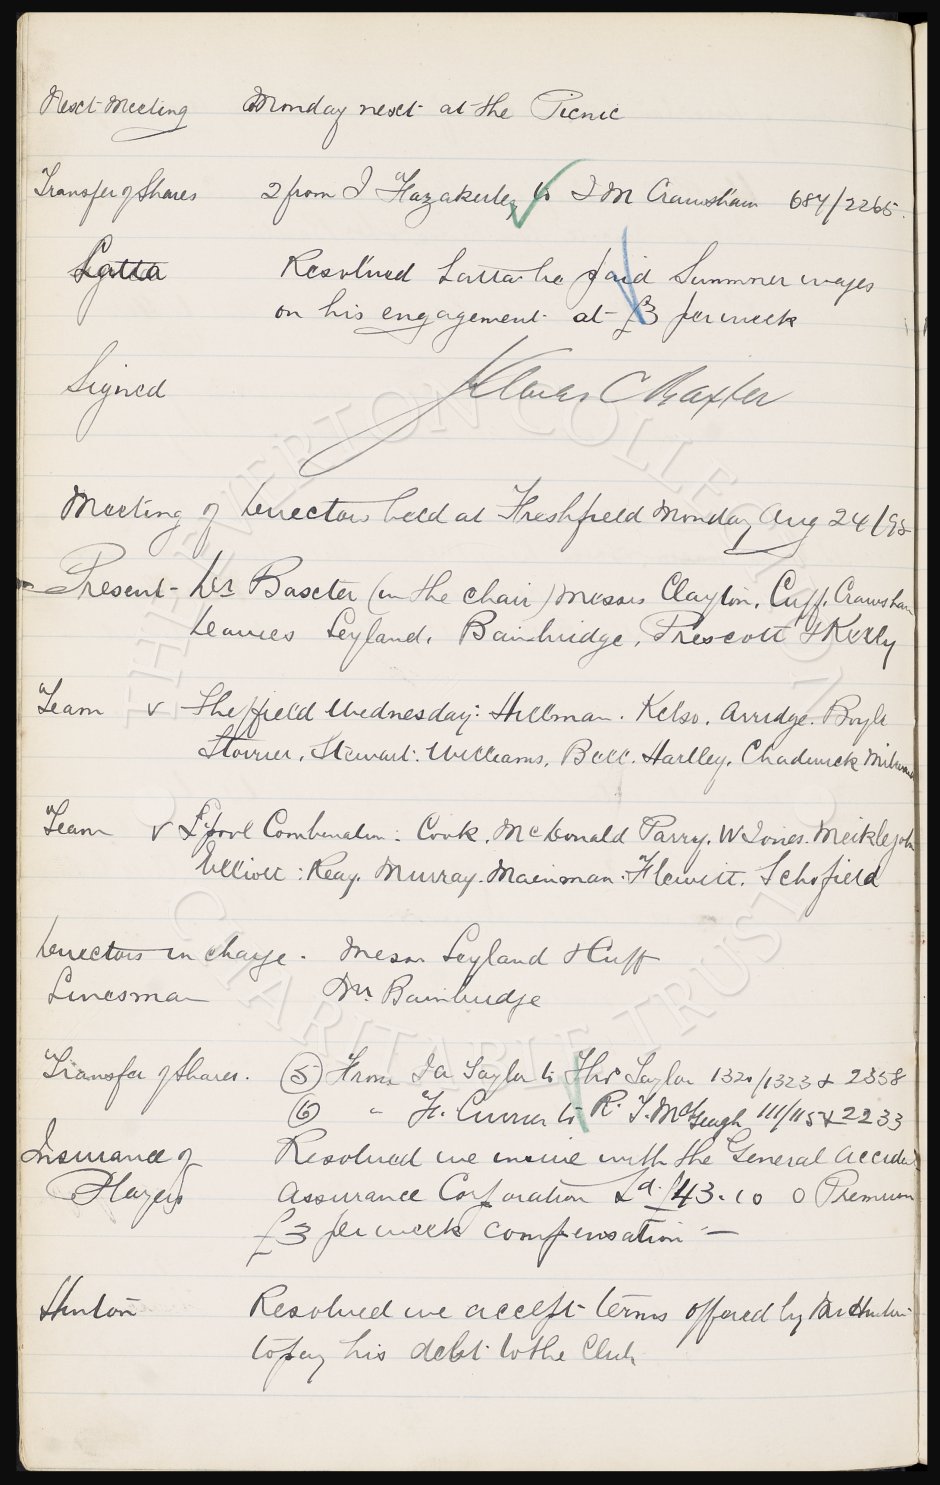 Next Meeting Monday next at the Picnic
Transfer of Shares 2 from J Hazakerley to I M Crawshaw 687/2265.
Latta Resolved Latta be paid Summer wages
on his engagement at £3 per week
Signed James C Baxter
Meeting of Directors held at Freshfield Monday Aug 24/98
Present - Dr Baxter (in the chair) Messrs Clayton, Cuff, Crawshaw
Davies Leyland, Bainbridge, Prescott & Kelly
Team v Sheffield Wednesday: Hillman. Kelso. Arridge. Boyle
Storrier. Stewart: Williams, Bell. Hartley. Chadwick Milward
Team v L'pool Combination: Cook. McDonald Parry. W Jones. Meiklejohn
Elliott: Reay. Murray. Mainman. Hewitt. Schofield
Directors in charge. Messrs Leyland & Cuff
Linesman Mr. Bainbridge
Transfer of Shares. (5) From Taylor to Thos Taylor 1320/1323 & 2358
(6) " F. Currier to R. T. McGeagh 111/115 & 2233
Insurance of Resolved we insure with the General Accident
Players Assurance Corporation Ld. £143.10 0 Premium
£3 per week compensation —
Hinton Resolved we accept terms offered by Mr Hinton
to pay his debt to the Club
THE EVERTON COLLECTION CHARITABLE TRUST